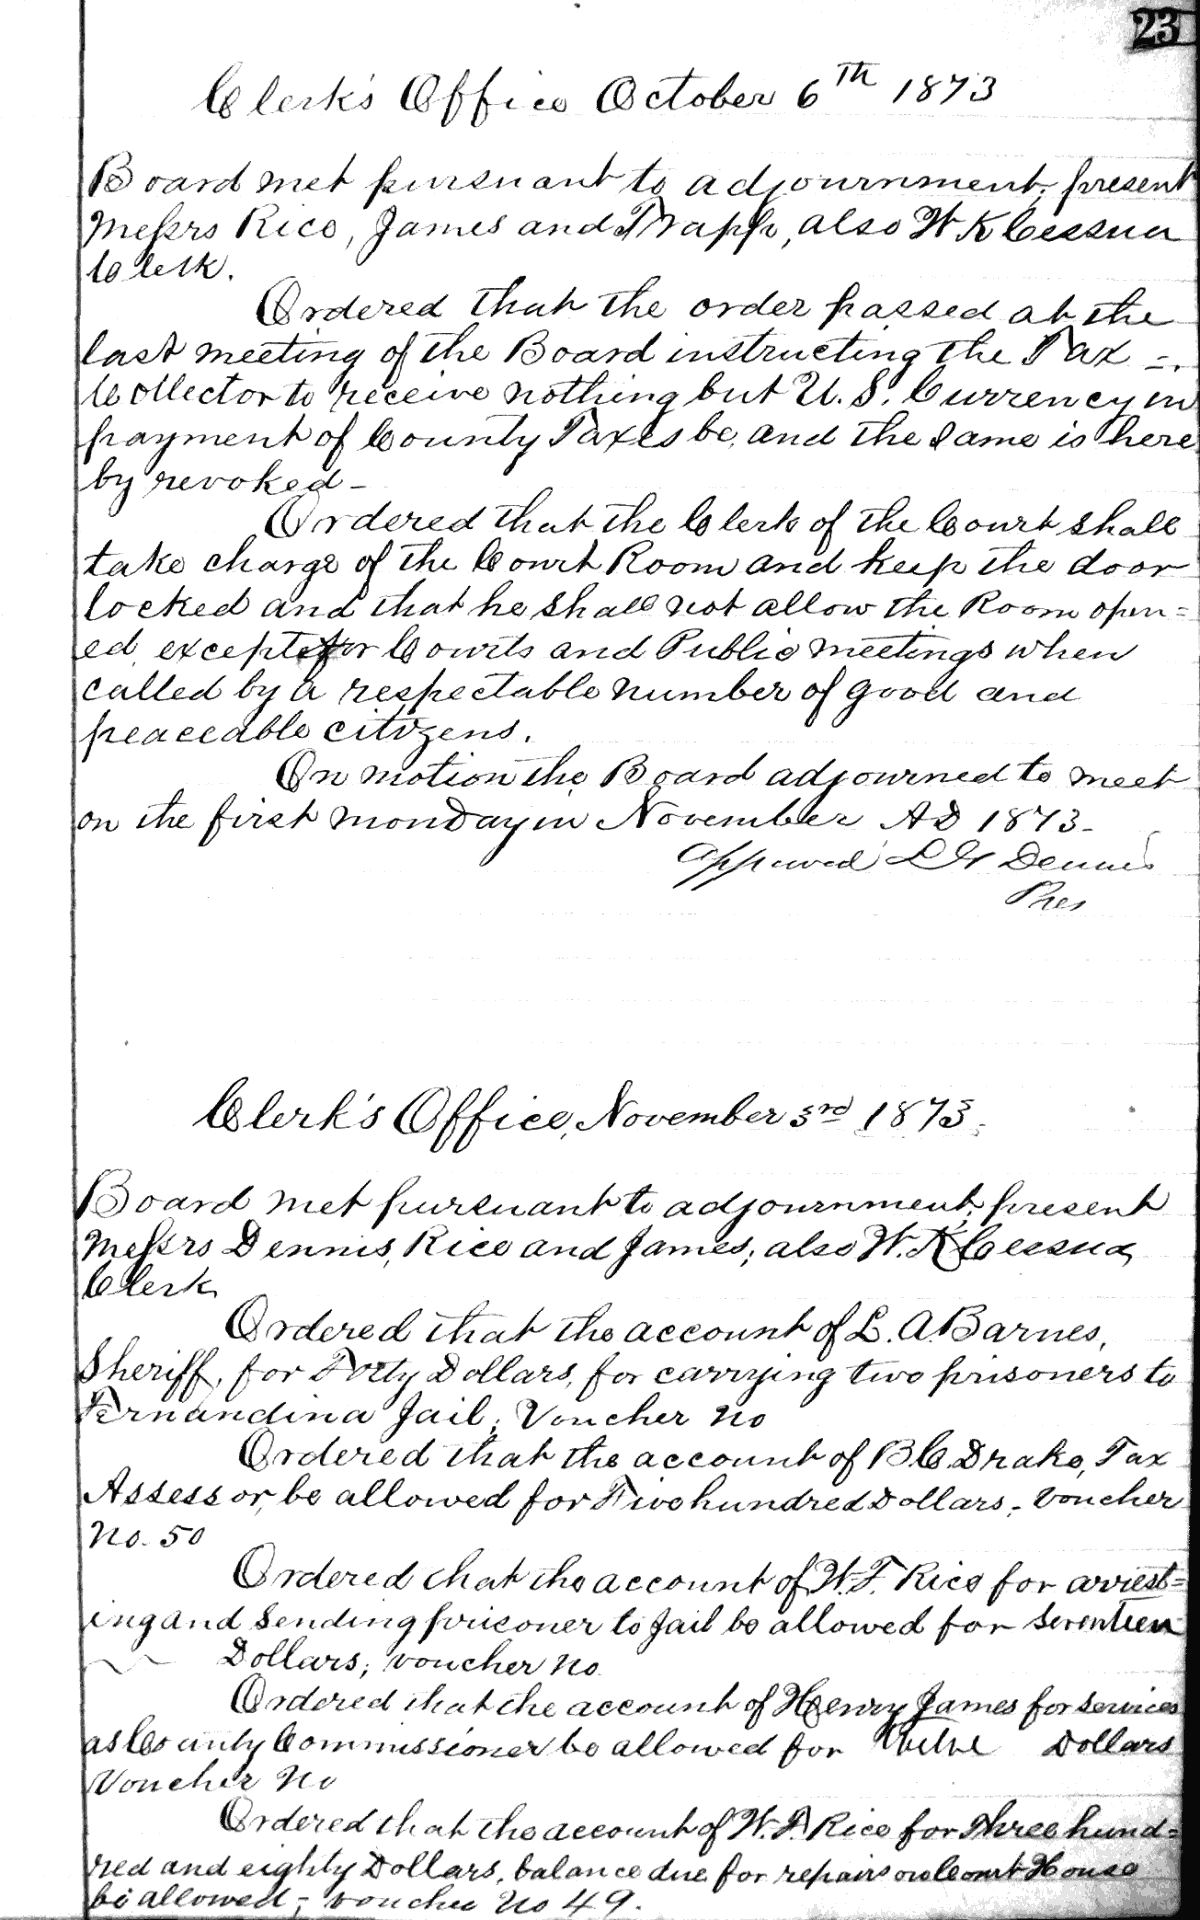 23
Clerk's Office October 6th 1873
Board met pursuant to adjournment; present
Messrs Rice, James and Trapp, also W K Cessna
Clerk.
Ordered that the order passed at the
last meeting of the Board instructing the Tax -
Collector to receive nothing but U.S. Currency in
payment of County Taxes be, and the same is here
by revoked -
Ordered that the Clerk of the Court shall
take charge of the Court Room and keep the door
locked and that he shall not allow the Room open=
ed, except for Courts and Public meetings when
called by a respectable number of good and
peaceable citizens.
On motion the Board adjourned to meet
on the first monday in November AD 1873-
Approved L G Dennis
Pres
Clerk's Office, November 3rd 1873.
Board met pursuant to adjournment; present
Messrs Dennis, Rice and James; also W. K Cessna
Clerk
Ordered that the account of L. A. Barnes,
Sheriff, for Forty Dollars, for carrying two prisoners to
Fernandina Jail; Voucher No
Ordered that the account of B. C. Drake, Tax
Assessor, be allowed for Five hundred Dollars; Voucher
No. 50
Ordered that the account of W. F. Rice for arrest=
ing and sending prisoner to Jail be allowed for Seventeen
Dollars; voucher No
Ordered that the account of Henry James for services
as County Commissioner be allowed for Twelve Dollars
Voucher No
Ordered that the account of W. F. Rice for Three hund=
red and eighty Dollars, balance due for repairs on Court House
be allowed; voucher No 49.